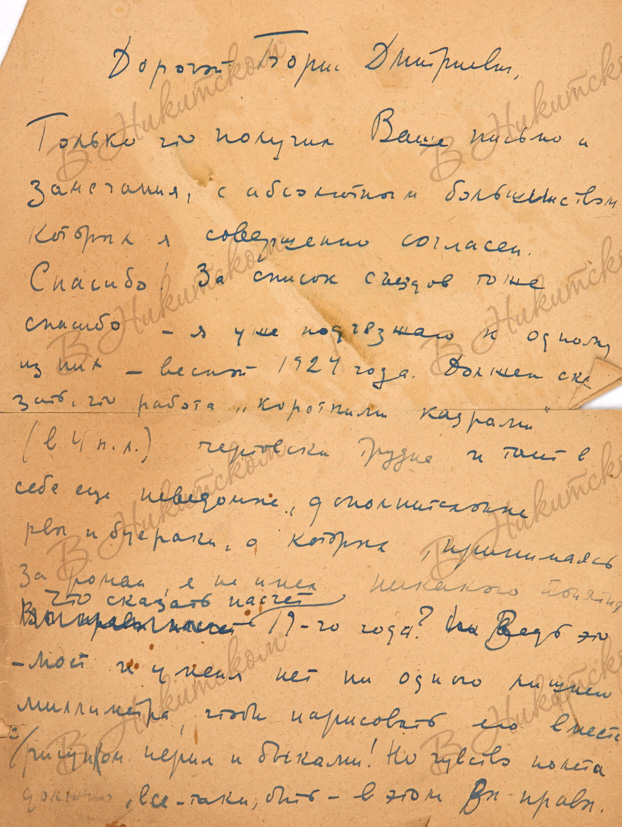 Дорогой Борис Дмитриевич,
Только что получил Ваше письмо и
замечания, с абсолютным большинством
которых я совершенно согласен.
Спасибо! За список съездов тоже
спасибо – я уже подъезжаю к одному
из них – весной 1924 года. Должен ска
зать, что работа „короткими кадрами“
(в 4 п.л.) чертовски трудна и таит в
себе еще неведомые, дополнительные
рвы и буераки, о которых, принимаясь
за роман, я не имел никакого понятия
Что сказать насчет
19-го года? Ведь это
– мост и у меня нет ни одного лишнего
миллиметра, чтобы нарисовать его вместе
с перил и быками! Но чувство моста
должно, все-таки, быть – в этом Вы правы.
В Никитском